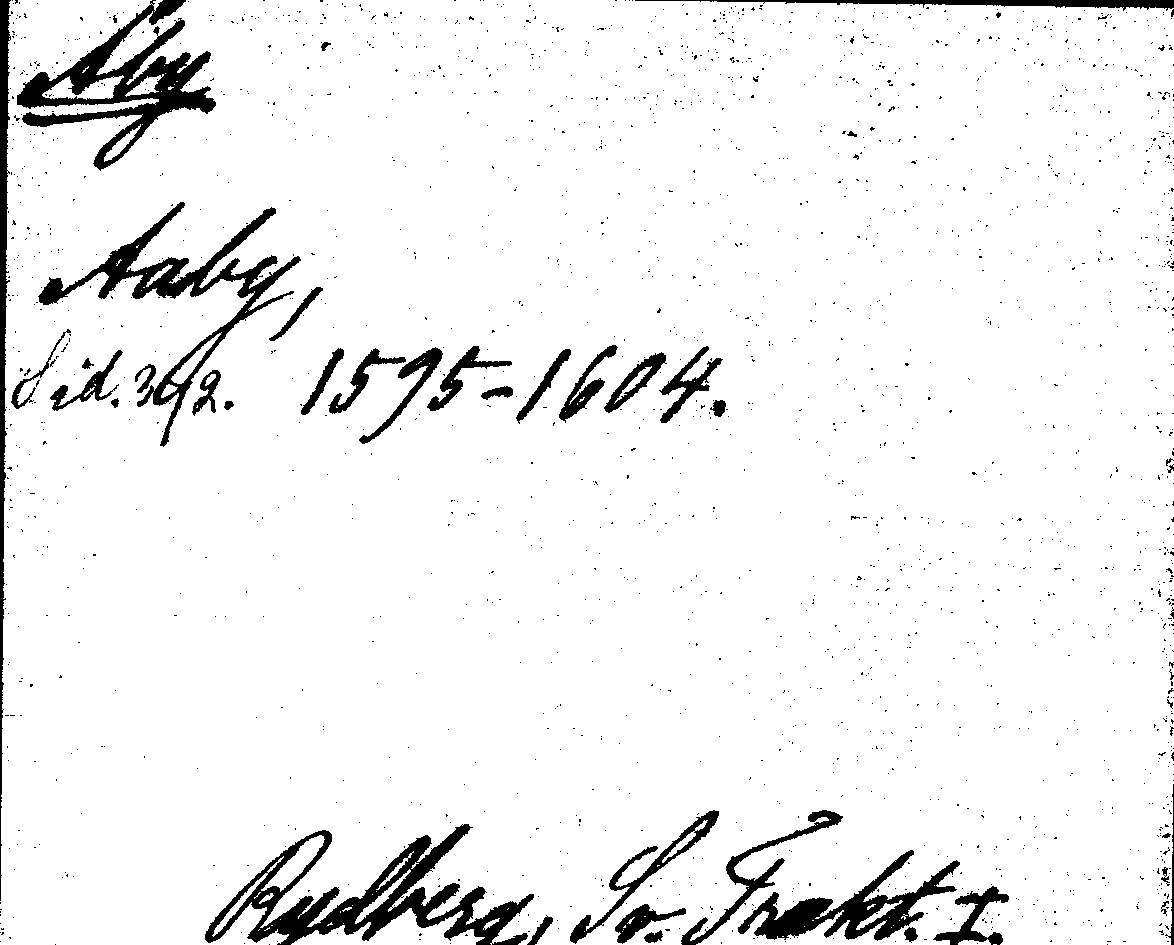 Åby
Aaby,
Sid. 392. 1595-1604.
Rydberg, Sv. Trakt. I.